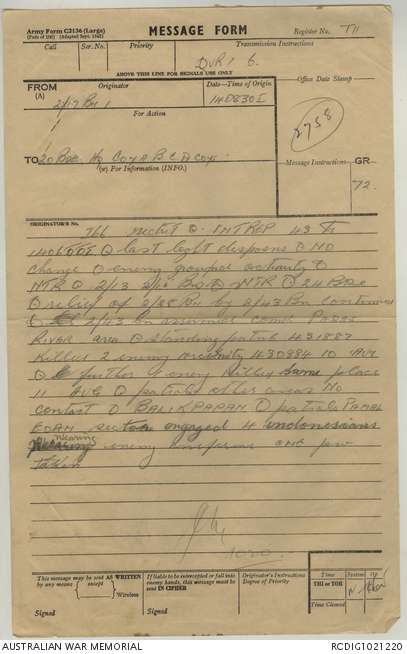 Army Form C2136 (Large)
(Pads of 100) (Adapted Sept. 1942)
MESSAGE FORM
Register No. T11
Call
Ser. No.
Priority
Transmission Instructions
6.
ABOVE THIS LINE FOR SIGNALS USE ONLY
FROM
(A)
Originator
Date-Time of Origin
Office Date Stamp
2/17 Bn
140830 I
For Action
2758
TO 20 Bde. HQ Coy A B C D Coys.
(w) For Information (INFO.)
Message Instructions
GR
72.
ORIGINATOR'S No.
766 INTREP 43 to
140600 last light dispns NO
change enemy ground activity
NTR 2/13 NTR 24 Bde
relief of 2/28 Bn by 2/43 Bn continues
2/43 Bn assumed comd PADAS
RIVER area standing patrol 431887
killed 2 enemy vicinity 430884 10 AUG
further 4 enemy killed same place
11 AUG patrols other areas NO
contact BALIKPAPAN patrols PAMAL
EDAM engaged 4 indonesians
wearing enemy uniforms one pw
taken
1000.
This message may be sent AS WRITTEN
by any means except
Wireless
Signed
If liable to be intercepted or fall into
enemy hands, this message must be
sent IN CIPHER
Signed
Originator's Instructions
Degree of Priority
Time
System
Op
THI or TOR
Time Cleared
AUSTRALIAN WAR MEMORIAL
RCDIG1021220